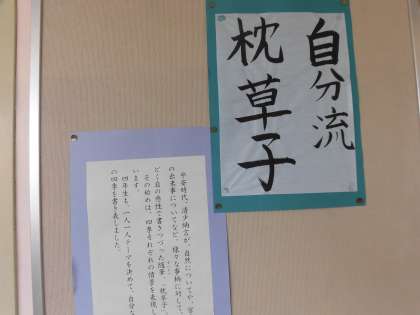 自分流
枕草子
平安時代、清少納言が、自然についてや、宮
の出来事についてなど、様々な事柄に対して、
どく自の感性で書きつづった随筆、「枕草子」
その始めは、四季それぞれの情景を表現し
います。
四年生も、一人一人テーマを決めて、自分な
の四季を書き表しました。